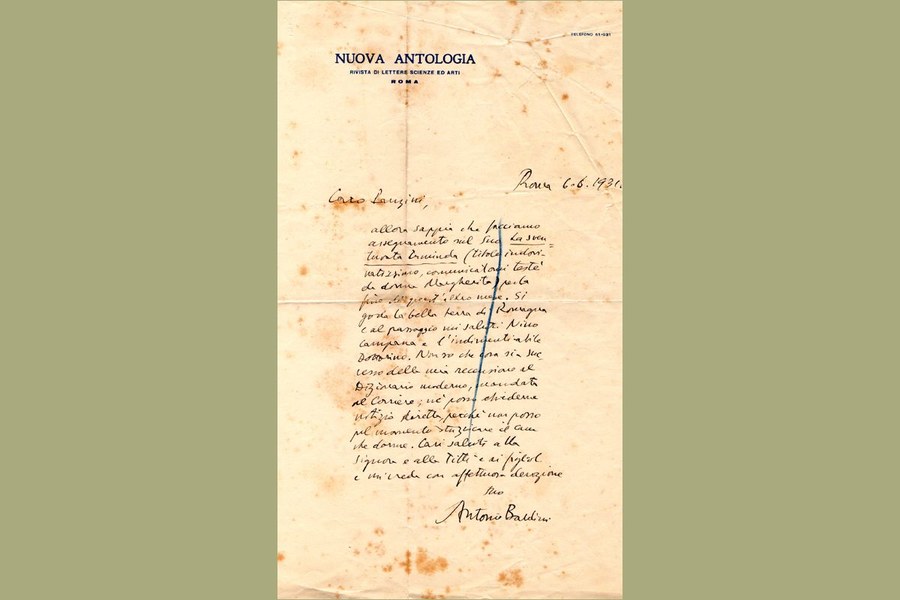 TELEFONO 61-
NUOVA ANTOLOGIA
RIVISTA DI LETTERE SCIENZE ED ARTI
ROMA
Roma 6-6.1931.
Caro Panzini,
allora sappia che facciamo
assegnamento sul Suo La sven=
turata Erminda (titolo indovi-
natissimo, comunicatomi testè
da donna Margherita) per la
fine di quest'altro mese. Si
goda la bella terra di Romagna
e al passaggio mi saluti Nino
Campana e l'indimenticabile
Non so che cosa sia suc
cesso della mia recensione al
Dizionario moderno, mandata
al Corriere; nè posso chiederne
notizia diretta, perchè non posso
pel momento stuzzicare il can
che dorme. Cari saluti alla
Signora e alla Titti e ai figliol
e mi creda con affettuosa devozione
suo
Antonio Baldini